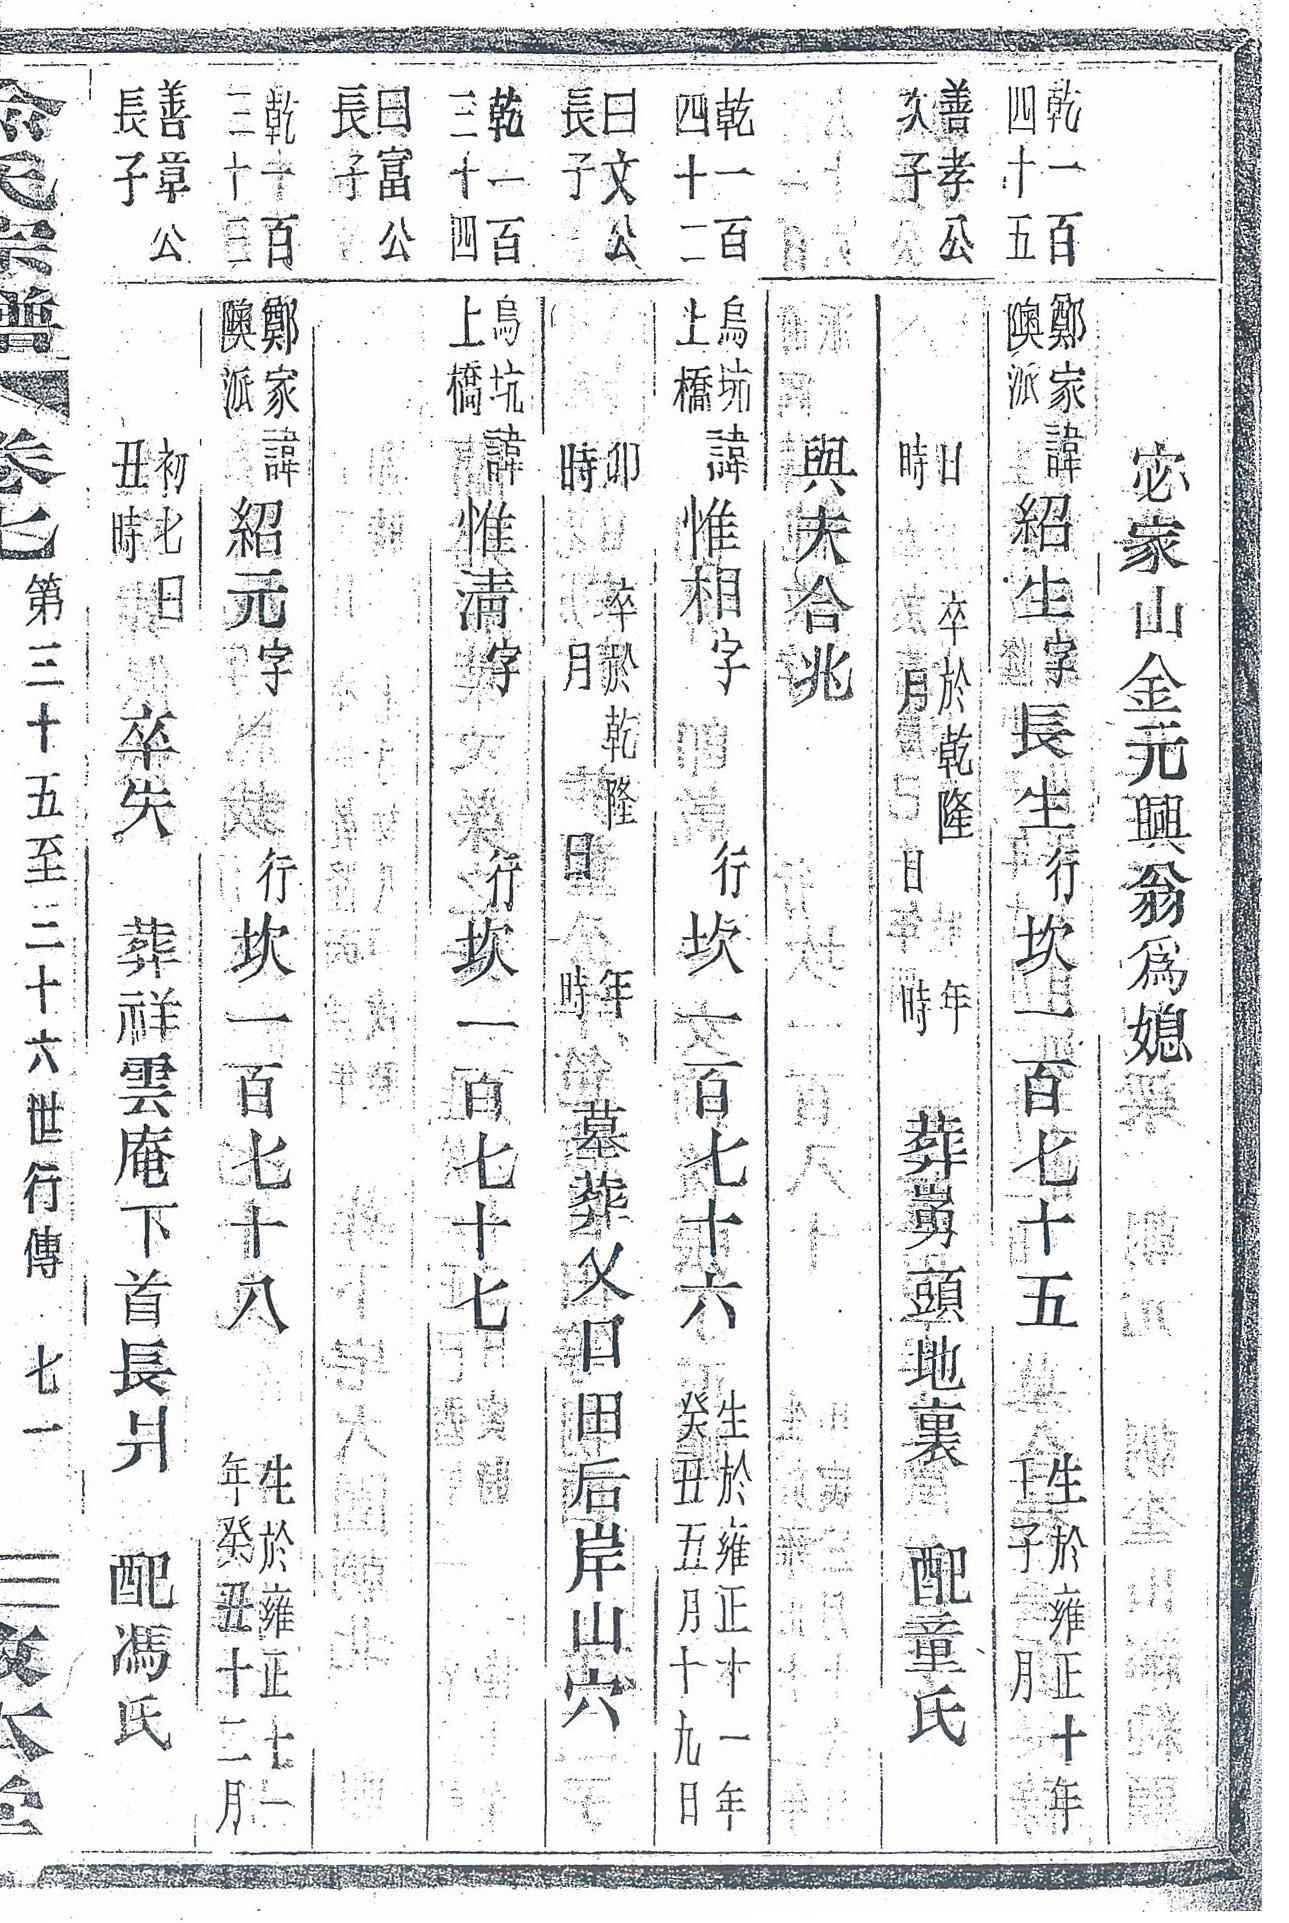 宓家山金元興翁為媳
乾一百四十五
鄭家隩派
諱紹生字長生行坎一百七十五
生於雍正十年壬子 月
善孝公次子
日 時
卒於乾隆 年 月 日 時
葬 頭地裏 配童氏
與夫合兆
乾一百四十二
烏坑上橋
諱惟相字 行坎一百七十六
生於雍正十一年癸丑五月十九日
曰文公長子
卯時
卒於乾隆 年 月 日 時
墓葬又日田后岸山穴
乾一百三十四
烏坑上橋
諱惟清字 行坎一百七十七
曰富公長子
乾一百三十三
鄭家隩派
諱紹元字 行坎一百七十八
生於雍正十一年癸丑十二月
善章公長子
初七日丑時
卒失 葬祥雲庵下首長爿 配馮氏
氏宗譜 卷七 第三十五至三十六世行傳 七一 敦本堂